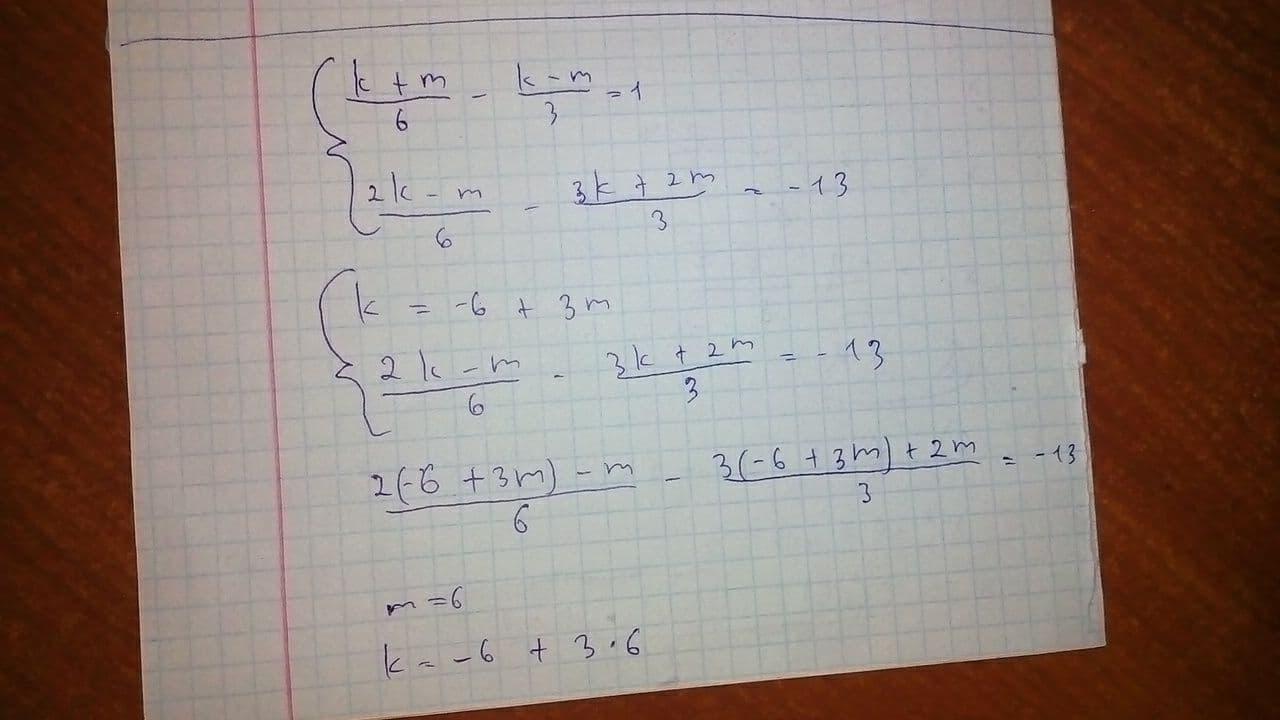 (k + m)/6 - (k - m)/3 = 1
(2k - m)/6 - (3k + 2m)/3 = -13
k = -6 + 3m
(2k - m)/6 - (3k + 2m)/3 = -13
(2(-6 + 3m) - m)/6 - (3(-6 + 3m) + 2m)/3 = -13
m = 6
k = -6 + 3 · 6